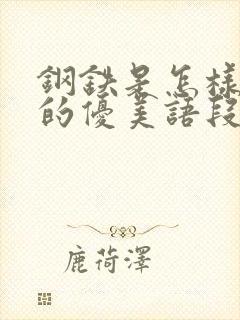 鋼鉄是怎樣
的優美語段
鹿荷澤